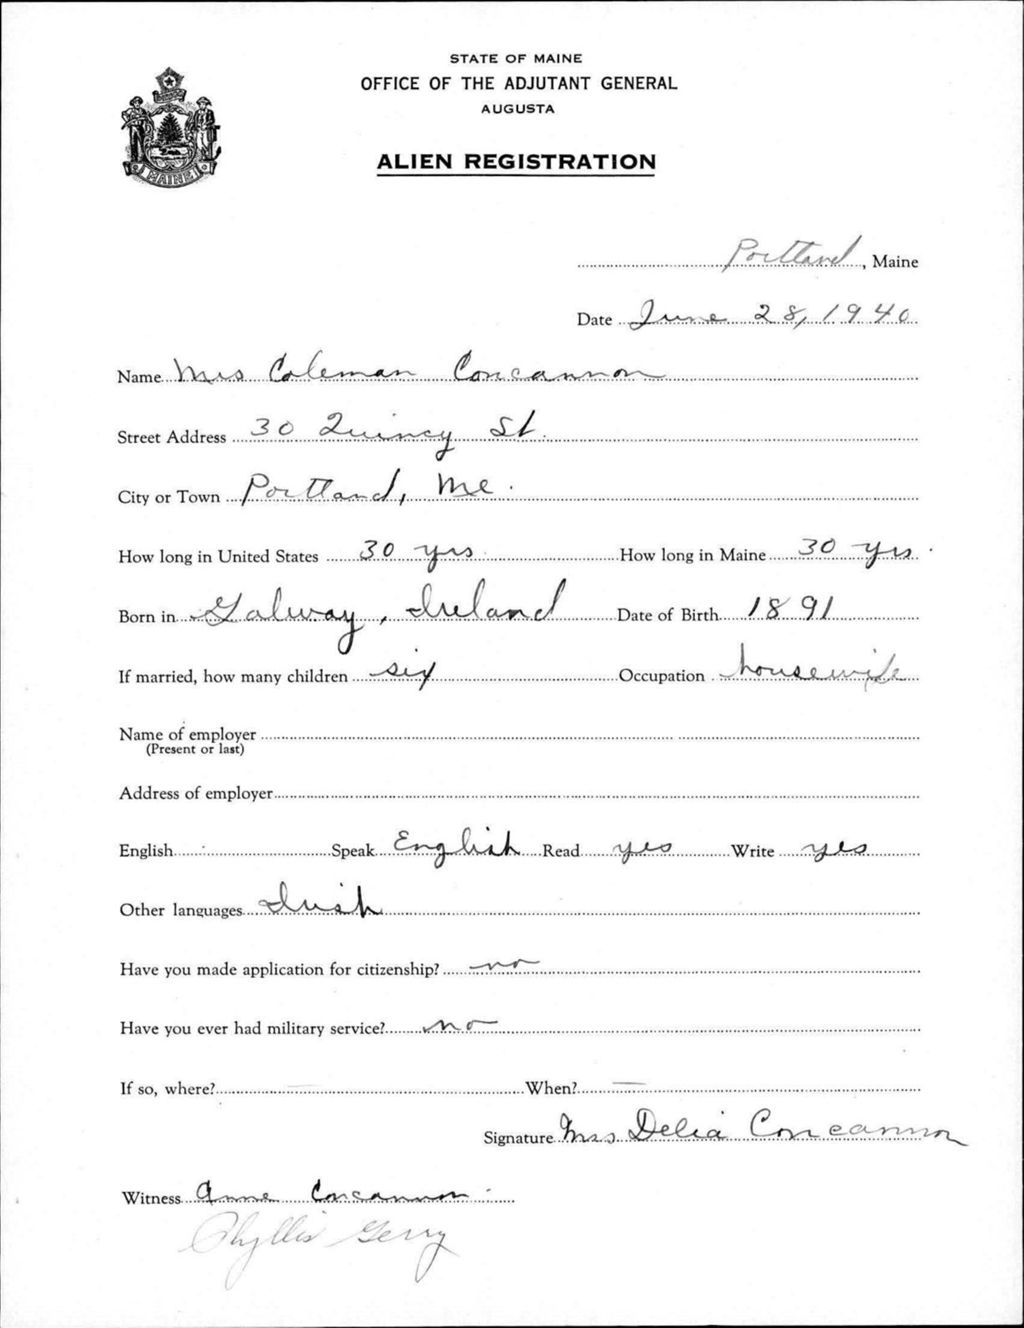 STATE OF MAINE
OFFICE OF THE ADJUTANT GENERAL
AUGUSTA
ALIEN REGISTRATION
MAINE
Portland, Maine
Date June 28, 1940
Name Mrs Coleman Concannon
Street Address 30 Quincy St.
City or Town Portland, Me.
How long in United States 30 yrs. How long in Maine 30 yrs.
Born in Galway, Ireland Date of Birth 1891
If married, how many children six Occupation housewife
Name of employer
(Present or last)
Address of employer
English Speak English Read yes Write yes
Other languages Irish
Have you made application for citizenship? no
Have you ever had military service? no
If so, where? — When? —
Signature Mrs. Delia Concannon
Witness Anne Concannon
Phyllis Gerry